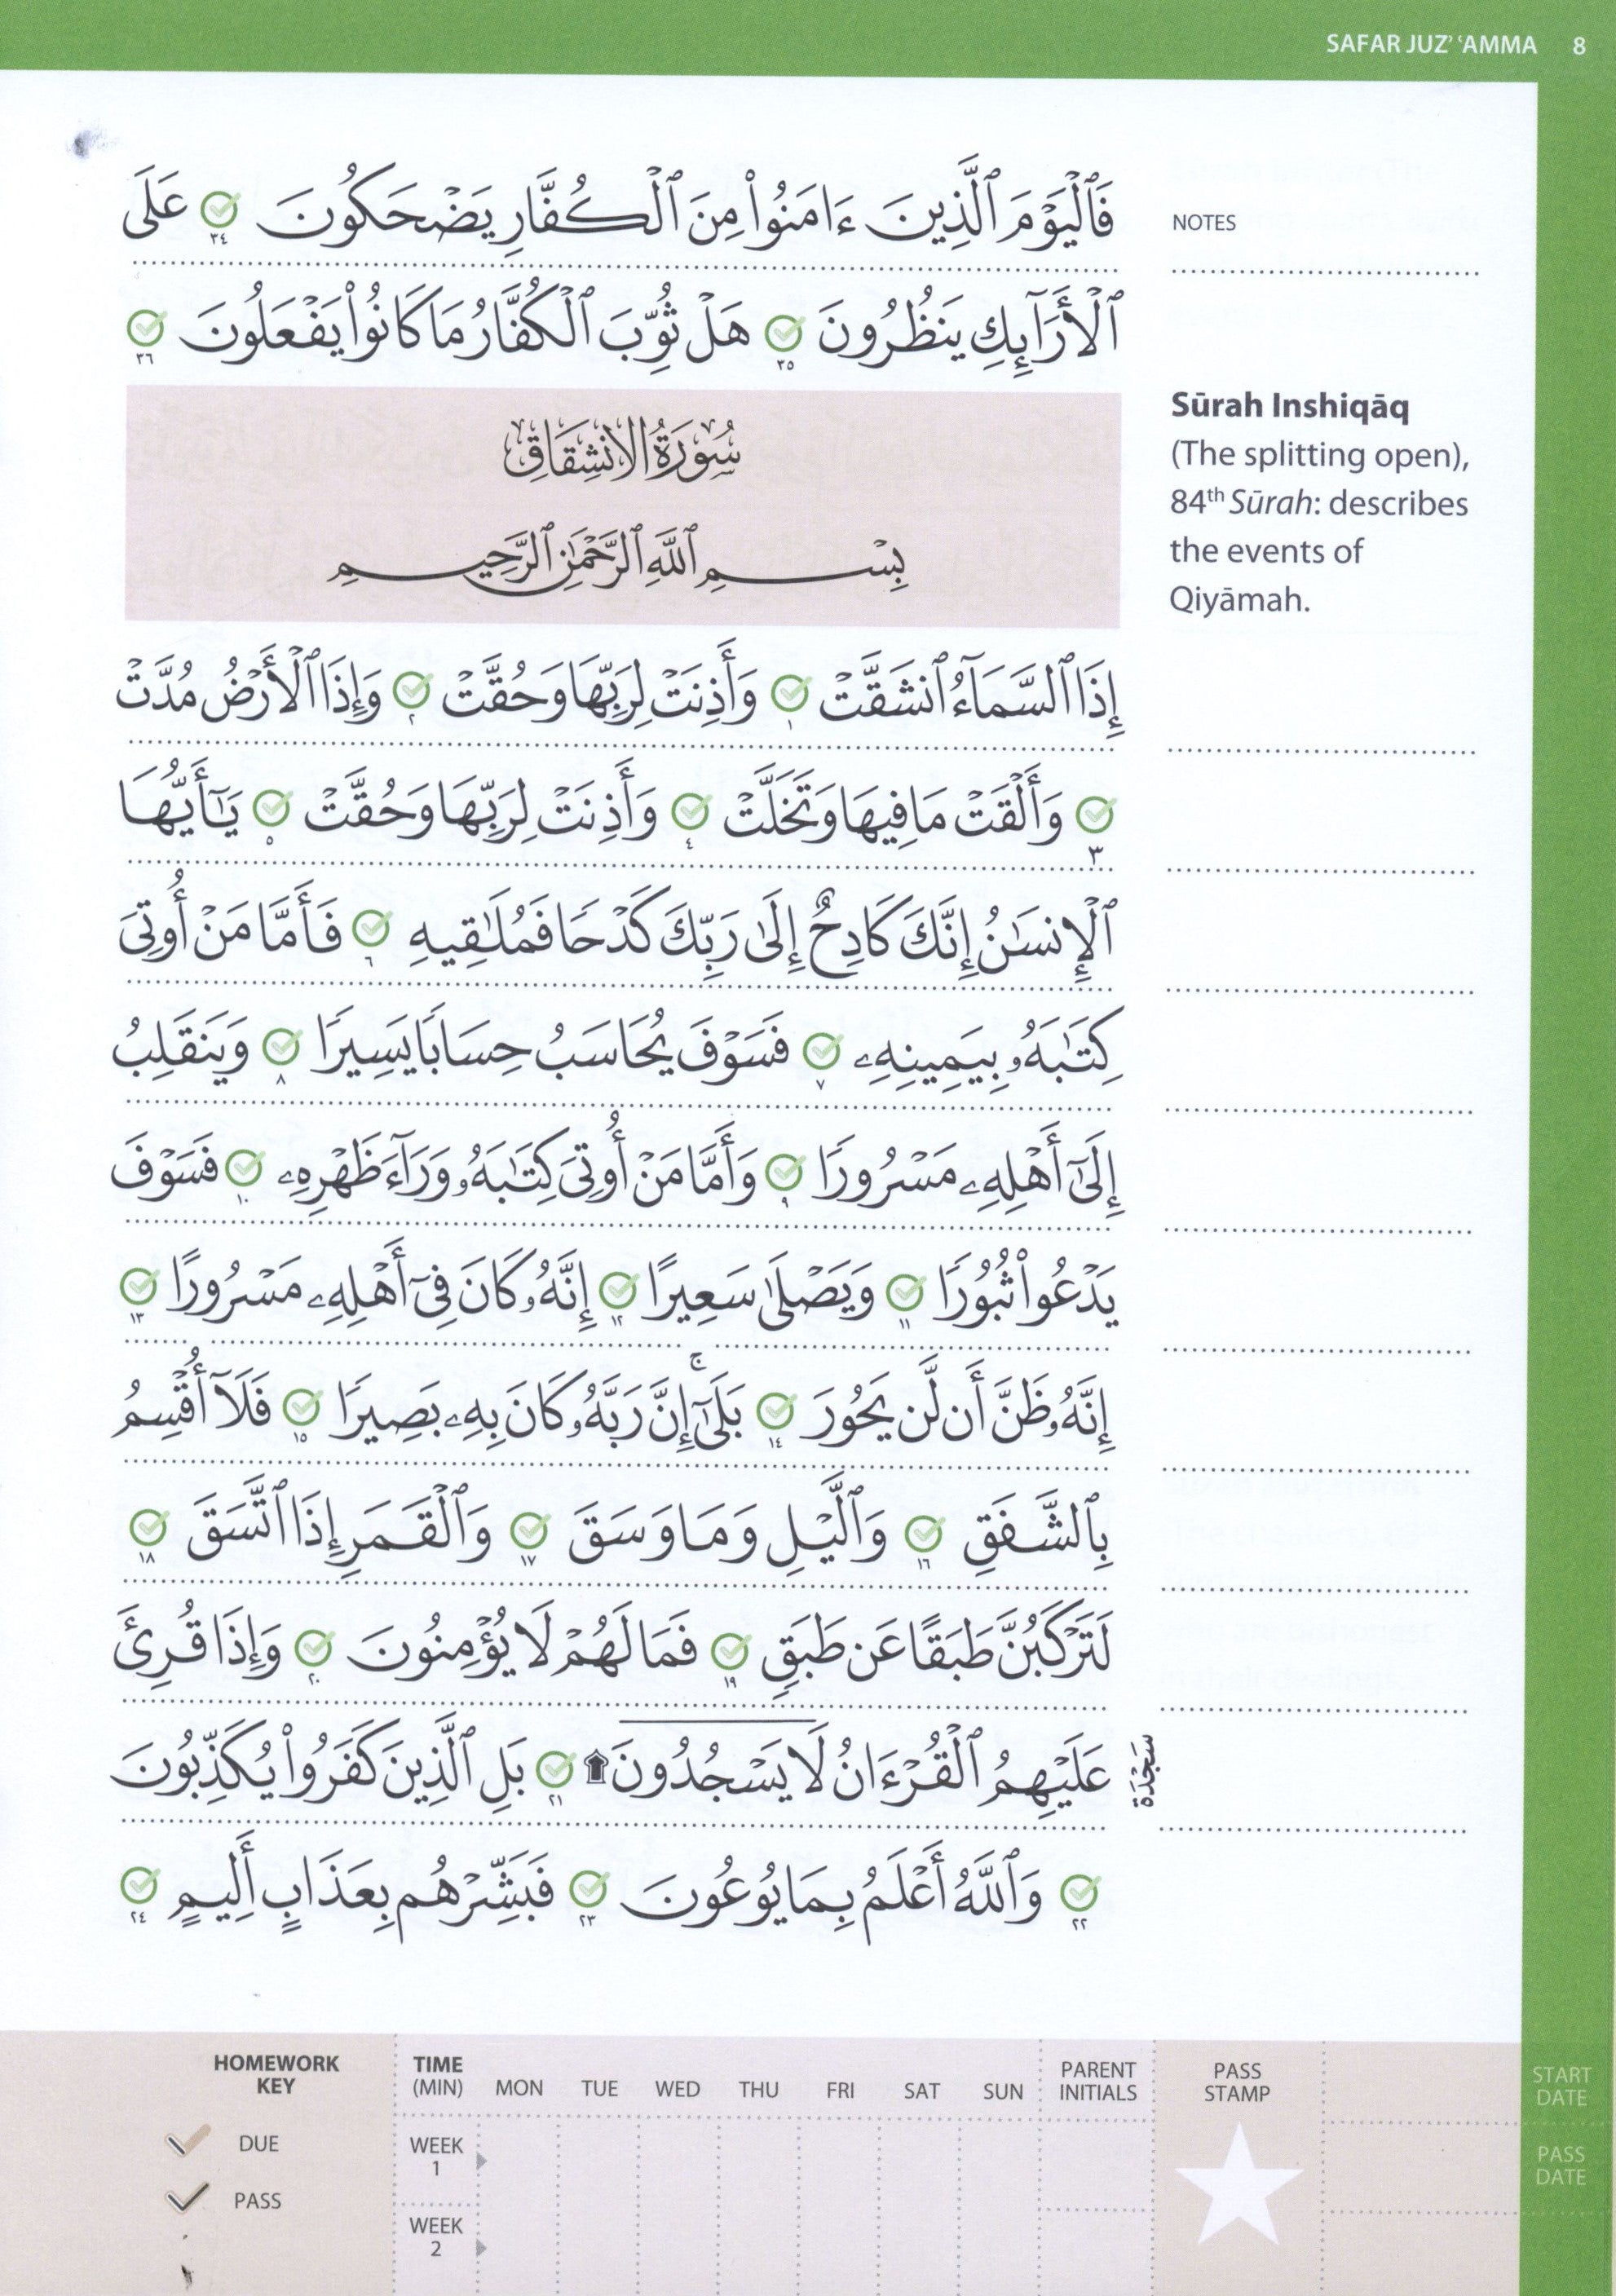 SAFAR JUZ’ ‘AMMA 8
فَٱلْيَوْمَ ٱلَّذِينَ ءَامَنُوا۟ مِنَ ٱلْكُفَّارِ يَضْحَكُونَ ٣٤ عَلَى
ٱلْأَرَآئِكِ يَنظُرُونَ ٣٥ هَلْ ثُوِّبَ ٱلْكُفَّارُ مَا كَانُوا۟ يَفْعَلُونَ ٣٦
NOTES
سُورَةُ الانشِقَاقِ
بِسْمِ ٱللَّهِ ٱلرَّحْمَٰنِ ٱلرَّحِيمِ
Sūrah Inshiqāq
(The splitting open),
84th Sūrah: describes
the events of
Qiyāmah.
إِذَا ٱلسَّمَآءُ ٱنشَقَّتْ ١ وَأَذِنَتْ لِرَبِّهَا وَحُقَّتْ ٢ وَإِذَا ٱلْأَرْضُ مُدَّتْ
٣ وَأَلْقَتْ مَا فِيهَا وَتَخَلَّتْ ٤ وَأَذِنَتْ لِرَبِّهَا وَحُقَّتْ ٥ يَٰٓأَيُّهَا
ٱلْإِنسَٰنُ إِنَّكَ كَادِحٌ إِلَىٰ رَبِّكَ كَدْحًا فَمُلَٰقِيهِ ٦ فَأَمَّا مَنْ أُوتِىَ
كِتَٰبَهُۥ بِيَمِينِهِۦ ٧ فَسَوْفَ يُحَاسَبُ حِسَابًا يَسِيرًا ٨ وَيَنقَلِبُ
إِلَىٰٓ أَهْلِهِۦ مَسْرُورًا ٩ وَأَمَّا مَنْ أُوتِىَ كِتَٰبَهُۥ وَرَآءَ ظَهْرِهِۦ ١٠ فَسَوْفَ
يَدْعُوا۟ ثُبُورًا ١١ وَيَصْلَىٰ سَعِيرًا ١٢ إِنَّهُۥ كَانَ فِىٓ أَهْلِهِۦ مَسْرُورًا ١٣
إِنَّهُۥ ظَنَّ أَن لَّن يَحُورَ ١٤ بَلَىٰٓۚ إِنَّ رَبَّهُۥ كَانَ بِهِۦ بَصِيرًا ١٥ فَلَآ أُقْسِمُ
بِٱلشَّفَقِ ١٦ وَٱلَّيْلِ وَمَا وَسَقَ ١٧ وَٱلْقَمَرِ إِذَا ٱتَّسَقَ ١٨
لَتَرْكَبُنَّ طَبَقًا عَن طَبَقٍ ١٩ فَمَا لَهُمْ لَا يُؤْمِنُونَ ٢٠ وَإِذَا قُرِئَ
عَلَيْهِمُ ٱلْقُرْءَانُ لَا يَسْجُدُونَ ۩ ٢١ بَلِ ٱلَّذِينَ كَفَرُوا۟ يُكَذِّبُونَ
سَجْدَة
٢٢ وَٱللَّهُ أَعْلَمُ بِمَا يُوعُونَ ٢٣ فَبَشِّرْهُم بِعَذَابٍ أَلِيمٍ ٢٤
HOMEWORK
KEY
DUE
PASS
TIME
(MIN) MON TUE WED THU FRI SAT SUN
PARENT
INITIALS
WEEK
1
WEEK
2
PASS
STAMP
START
DATE
PASS
DATE